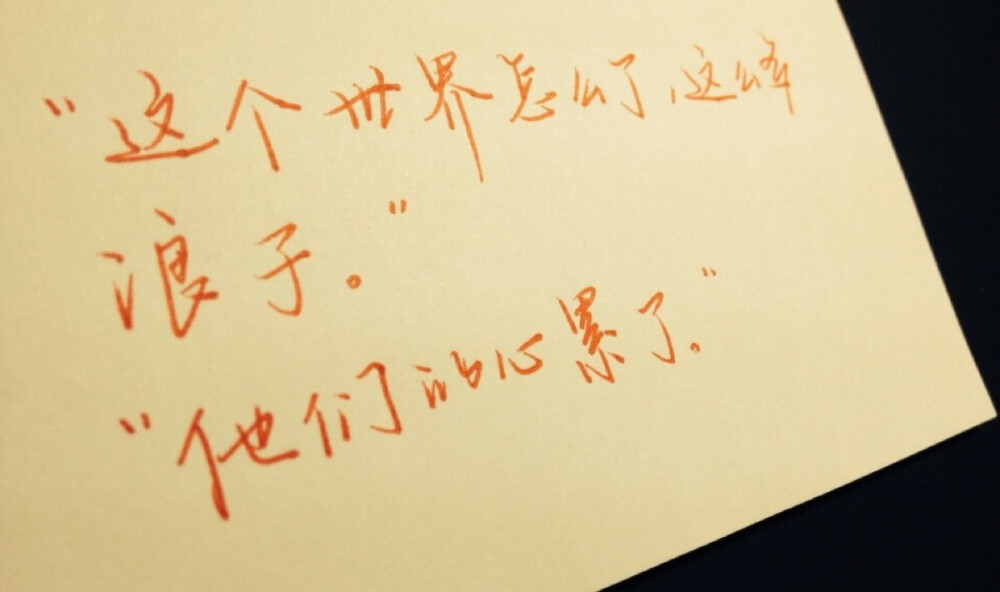 "这个世界怎么了,这么多
浪子。"
"他们的心累了。"